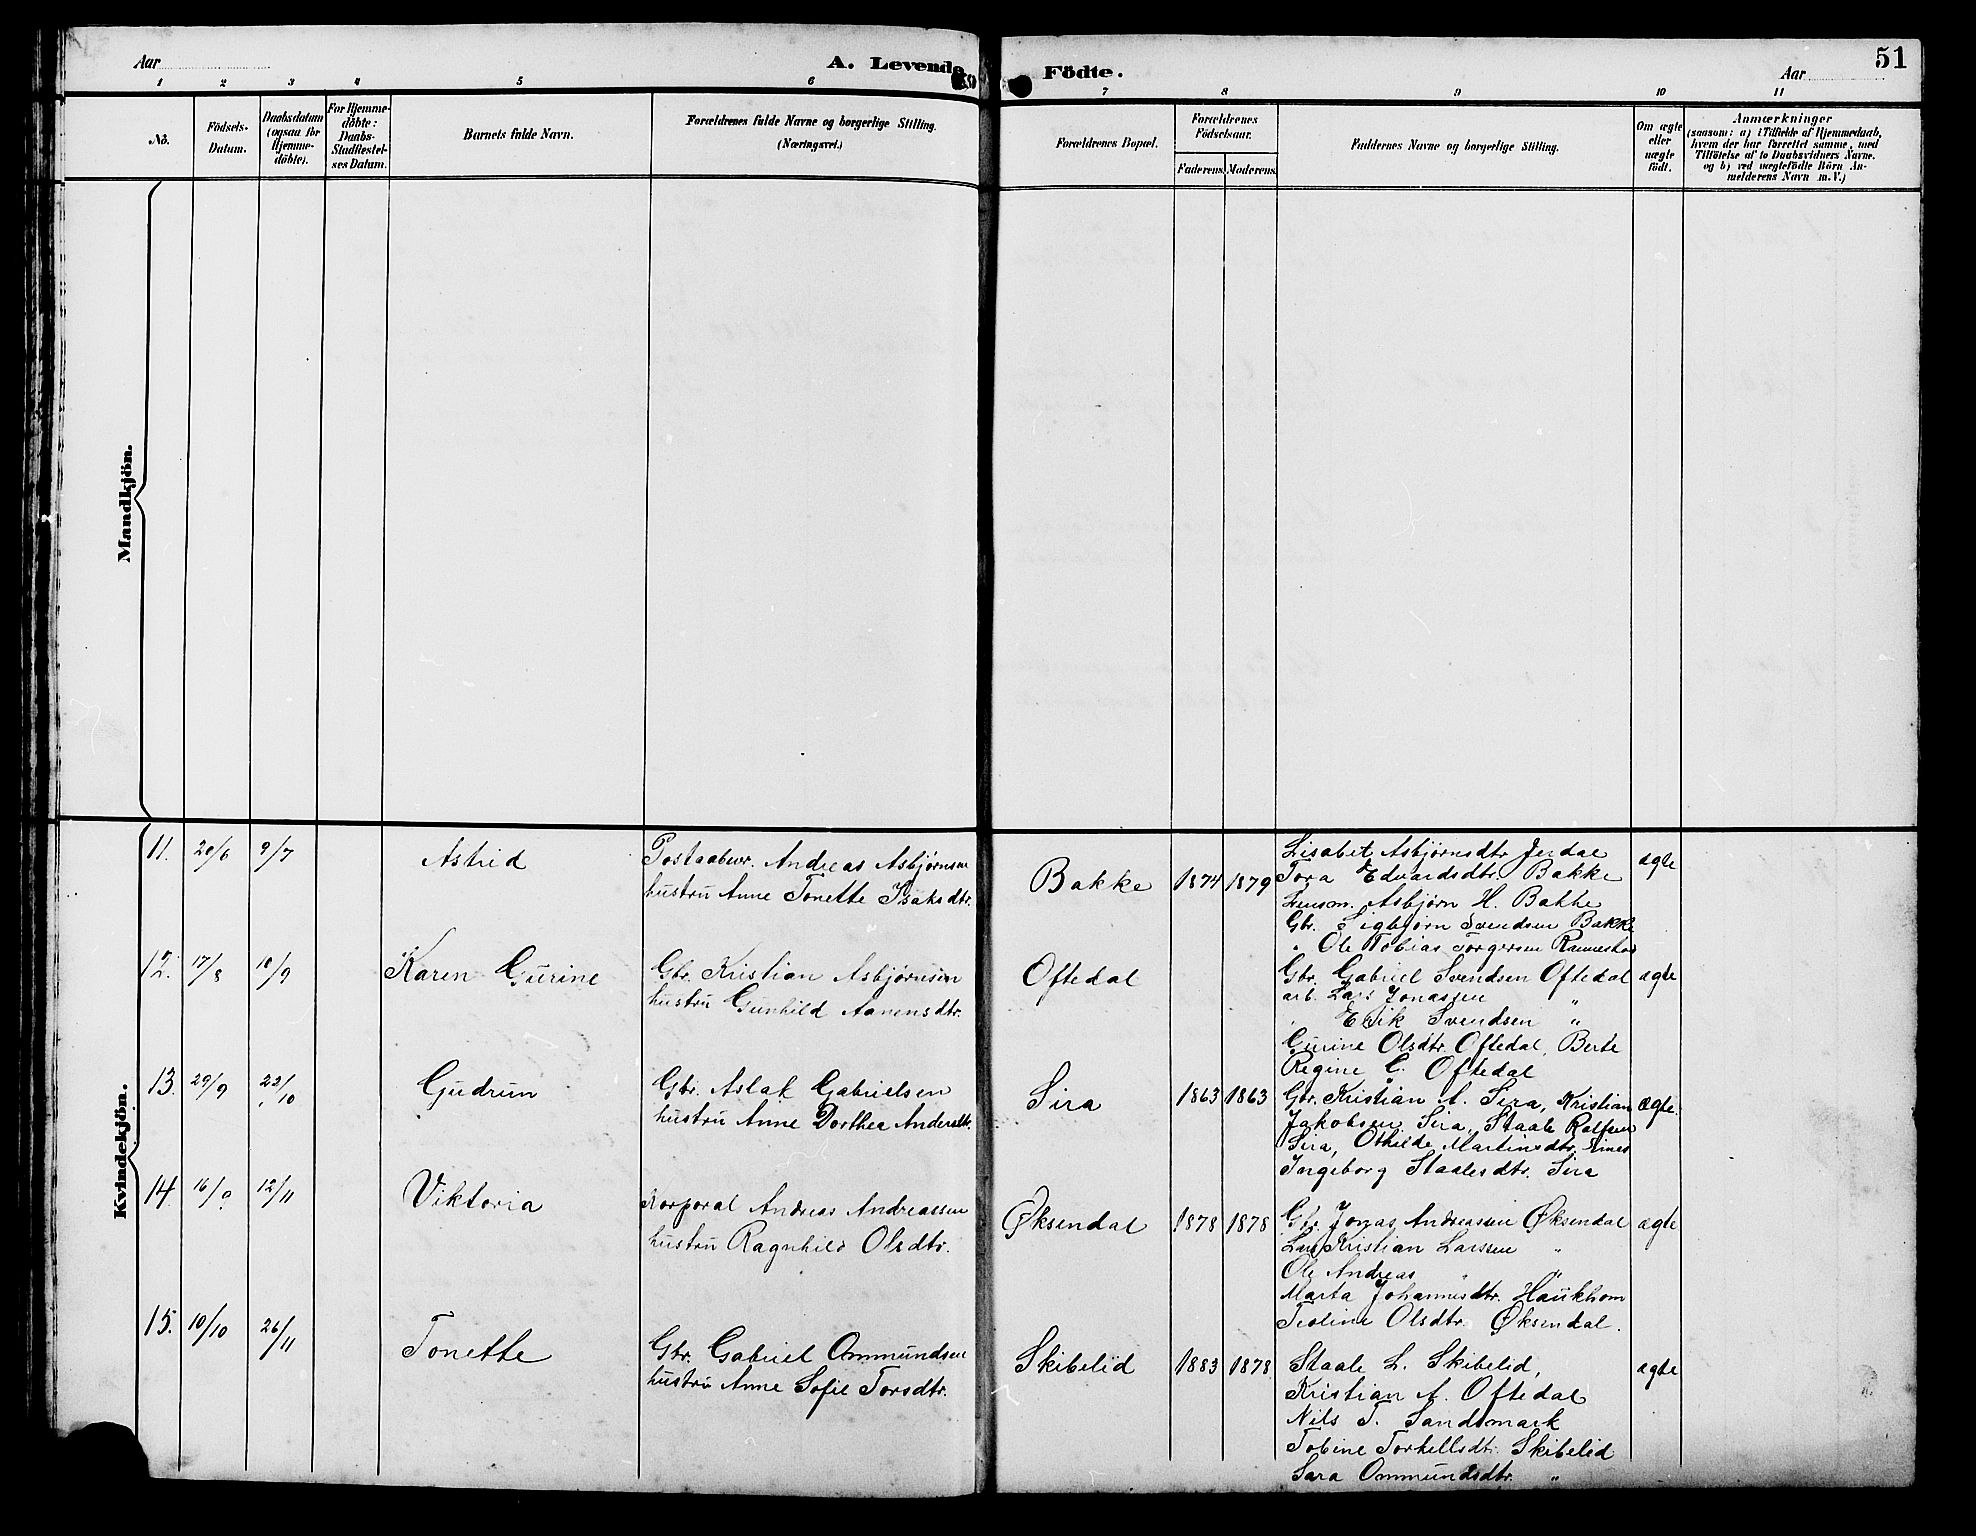 51
Aar
A. Levende Födte.
Aar
1 2 3 4 5 6 7 8 9 10 11
No.
Födsels-Datum.
Daabsdatum (ogsaa for Hjemme-döbte).
For Hjemme-döbte: Daabs-Stadfæstel-ses Datum.
Barnets fulde Navn.
Forældrenes fulde Navne og borgerlige Stilling. (Næringsvei.)
Forældrenes Bopæl.
Forældrenes Födselsaar.
Faderens. Moderens.
Faddernes Navne og borgerlige Stilling.
Om ægte eller uægte födt.
Anmærkninger
(saasom: a) i Tilfælde af Hjemmedaab,
hvem der har forrettet samme, med
Tilföielse af to Daabsvidners Navne.
og b) ved uægtefödte Börn An-
melderens Navn m. V.)
Mandkjön.
Kvindekjön.
11. 20/6 9/7 Astrid
Postaabnr. Andreas Asbjørnsen
hustru Anne Tonette Isaksdtr.
Bakke 1874 1879
Lisabet Asbjørnsdtr Jerdal
Tora Edvardsdtr. Bakke
Lensm. Asbjørn H. Bakke
Gbr. Sigbjørn Svendsen Bakke
" Ole Tobias Torgersen
ægte
12. 17/8 10/9 Karen Gurine
Gbr. Kristian Asbjørnsen
hustru Gunhild Aanensdtr.
Oftedal
Gbr. Gabriel Svendsen Oftedal
arb. Lars Jonassen "
Erik Svendsen "
Gurine Olsdtr. Oftedal, Berte
Regine G. Oftedal
ægte
13. 29/9 22/10 Gudrun
Gbr. Aslak Gabrielsen
hustru Anne Dorthea Andersdtr.
Sira 1863 1863
Gbr. Kristian A. Sira, Kristian
Jakobsen Sira, Staale Rolfsen
Sira, Othilde Martinsdtr.
Ingeborg Staalesdtr. Sira
ægte.
14. 16/9 12/11 Viktoria
Korporal Andreas Andreassen
hustru Ragnhild Olsdtr.
Øksendal 1878 1878
Gbr. Jonas Andreassen Øksendal
Lars Kristian Larssen "
Ole Andreas " "
Marta Johannesdtr. Haukhom
Teoline Olsdtr. Øksendal.
ægte
15. 10/10 26/11 Tonette
Gbr. Gabriel Ommundsen
hustru Anne Sofie Torsdtr.
Skibelid 1883 1878
Staale L. Skibelid,
Kristian A. Oftedal
Nils T. Sandsmark
Tobine Torkellsdtr. Skibelid
Sara Ommundsdtr. "
ægte